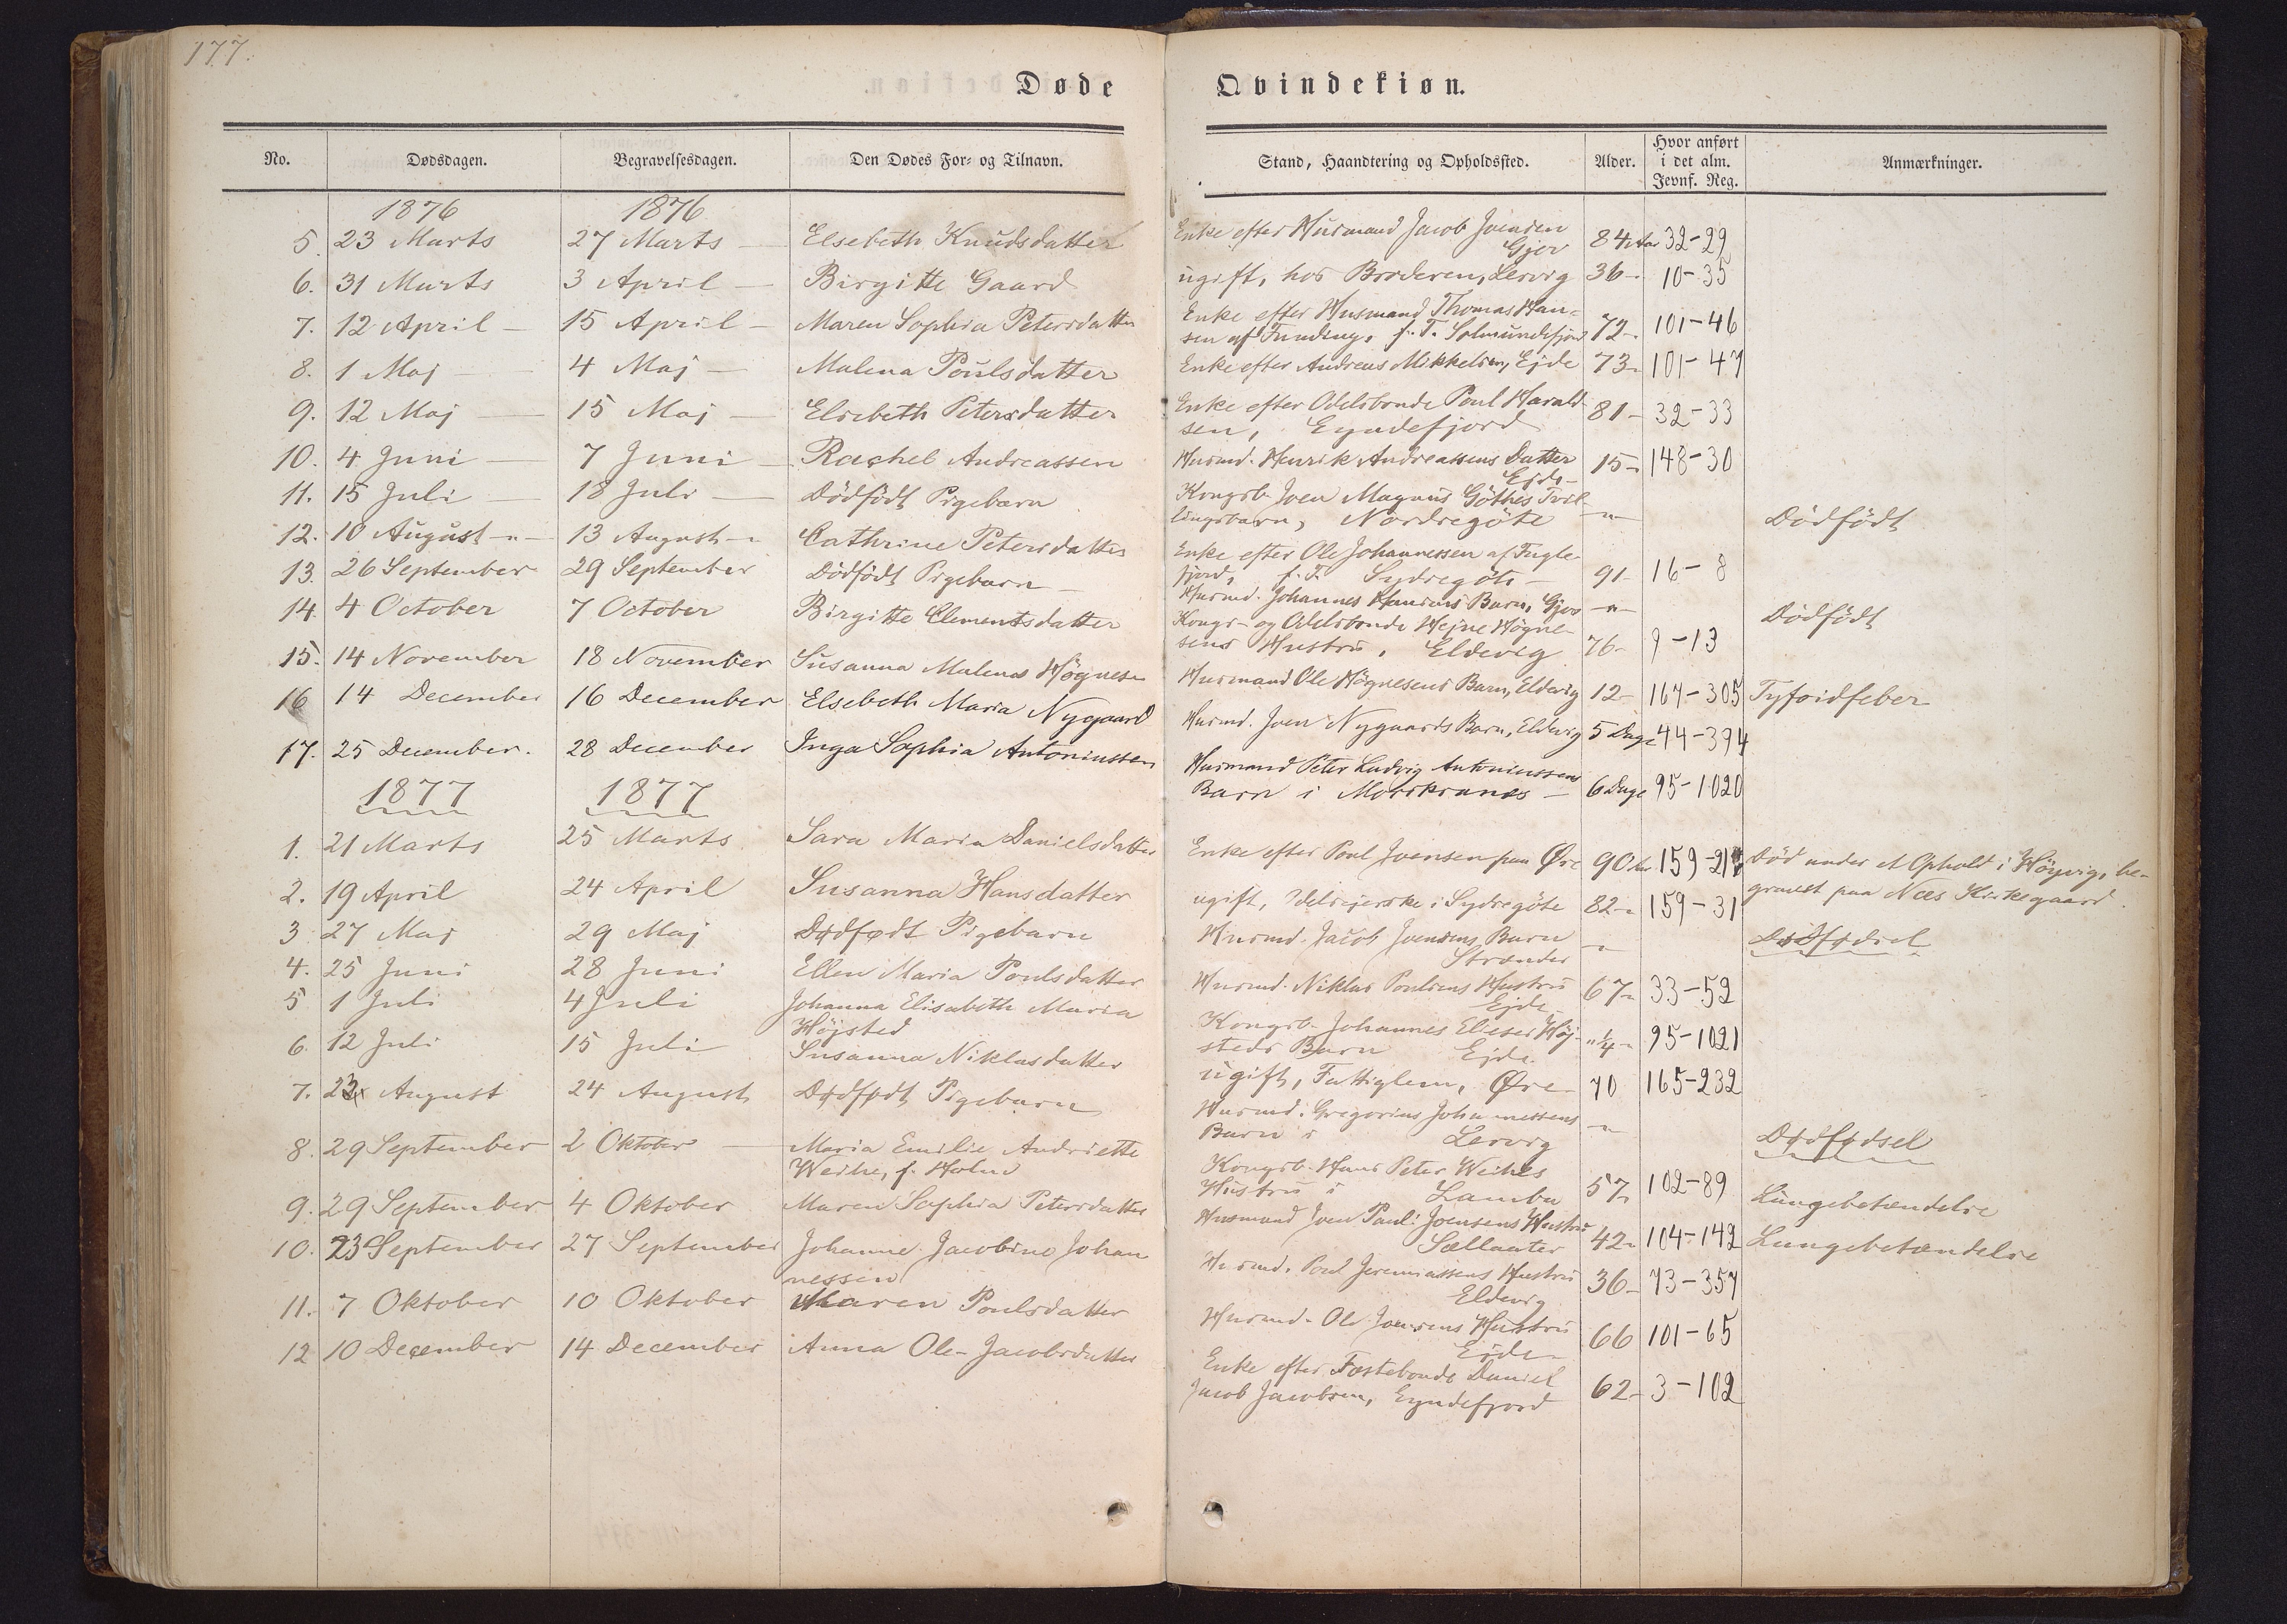 177.
Døde Qvindekiøn.
No. Dødsdagen. Begravelsesdagen. Den Dødes For- og Tilnavn. Stand, Haandtering og Opholdssted. Alder. Hvor anført i det alm. Jevnf. Reg. Anmærkninger.
1876 1876
5. 23 Marts 27 Marts — Elsebeth Knudsdatter Enke efter Husmand Jacob Joensen Gjov 84 Aar 32-29
6. 31 Marts 3 April — Birgitte Gaard ugift, hos Broderen, Lervig 36 - 10-35
7. 12 April — 15 April — Maren Sophia Petersdatter Enke efter Husmand Thomas Han-
sen af Funding, f. T. Selmundefjord 72 - 101-46
8. 1 Maj — 4 Maj — Malena Poulsdatter Enke efter Andreas Mikkelsen, Ejde 73 - 101-47
9. 12 Maj — 15 Maj — Elsebeth Petersdatter Enke efter Odelsbonde Poul Harald-
sen, Eyndefjord 81 - 32-33
10. 4 Juni — 7 Juni — Rachel Andreassen Husmd. Henrik Andreassens Datter
Ejde 15 - 148-30
11. 15 Juli — 18 Juli — Dödfödt Pigebarn Kongsb. Joen Magnus Göthes Tvil-
lingsbarn, Nordregöte -"- Dödfödt
12. 10 August -"- 13 August -"- Cathrine Petersdatter Enke efter Ole Johannessen af Fugle-
fjord, f. T. Sydregöte — 91 - 16-8
13. 26 September 29 September Dödfödt Pigebarn — Husmd. Johannes Hansens Barn, Gjov -"- Dödfödt
14. 4 October 7 October Birgitte Clementsdatter Kongs- og Odelsbonde Hejne Högne-
sens Hustru, Eldevig 76 - 9-13
15. 14 November 18 November Susanna Malena Högnesen Husmand Ole Högnesens Barn, Eldevig 12 - 167-305 Tyfoidfeber
16 14 December 16 December Elsebeth Maria Nygaard Husmd. Joen Nygaards Barn, Eldevig 5 Dage 44-394
17. 25 December. 28 December Inga Sophia Antoniussen Husmand Peter Ludvig Antoniussens
Barn i Morskranes — 6 Dage 95-1020
1877 1877
1. 21 Marts 25 Marts Sara Maria Danielsdatter Enke efter Poul Joensen paa Øre 90 Aar 159-21 Död under et Ophold i Höyvig, be-
gravet paa Næs Kirkegaard.
2. 19 April 24 April Susanna Hansdatter ugift, i Sydregöte 82 - 159-31
3 27 Maj 29 Maj Dødfødt Pigebarn Husmd. Jacob Joensens Barn
Strænder -"- Dødfødsel
4. 25 Juni 28 Juni Ellen Maria Poulsdatter Husmd. Niklas Poulsens Hustru
Ejde 67 - 33-52
5 1 Juli 4 Juli Johanna Elisabeth Maria
Höjsted Kongsb. Johannes Elieser Höj-
steds Barn Ejde " 1/4 - 95-1021
6. 12 Juli 15 Juli Susanna Niklasdatter ugift, Fattiglem, Øre 70 165-232
7. 23 August 24 August Dødfødt Pigebarn Husmd. Gregorius Johannessens
Barn i Lervig -"- Dødfødsel
8. 29 September 2 Oktober — Maria Emilie Andriette
Weihe, f. Holm Kongsb. Hans Peter Weihes
Hustru i Lamba 57 - 102-89 Lungebetændelse
9. 29 September 4 Oktober Maren Sophia Petersdatter Husmand Joen Paul: Joensens Hustru
Sællaater 42 - 104-142 Lungebetændelse
10. 23 September 27 September Johanne Jacobine Johan
nessen Husmd. Poul Jeremiassens Hustru
Eldevig 36 - 73-357
11. 7 Oktober 10 Oktober Maren Poulsdatter Husmd. Ole Joensens Hustru
Ejde 66 101-65
12 10 December 14 December Anna Ole-Jacobsdatter Enke efter Fæstebonde Daniel
Jacob Jacobsen, Eyndefjord 62 - 3-102